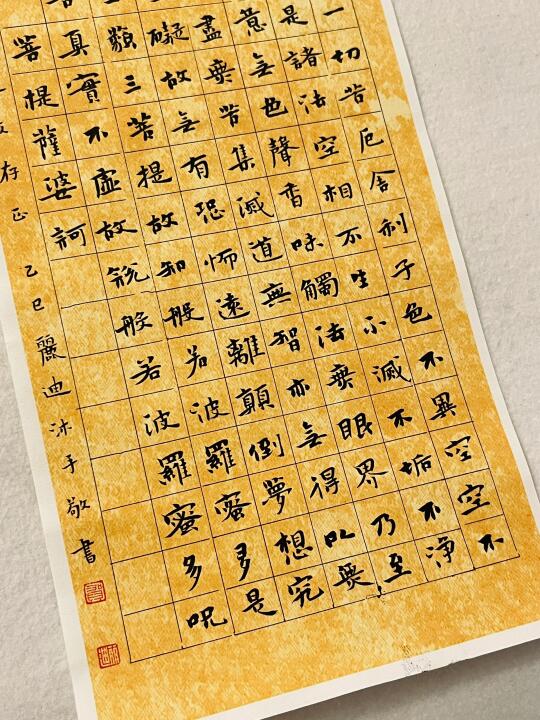 一切苦厄舍利子色不異空空不
是諸法空相不生不滅不垢不淨
意無色聲香味觸法無眼界乃至
盡無苦集滅道無智亦無得以無
礙故無有恐怖遠離顛倒夢想究
藐三菩提故知般若波羅蜜多是
真實不虛故說般若波羅蜜多呪
菩提薩婆訶
存正 乙巳麗迪沐手敬書